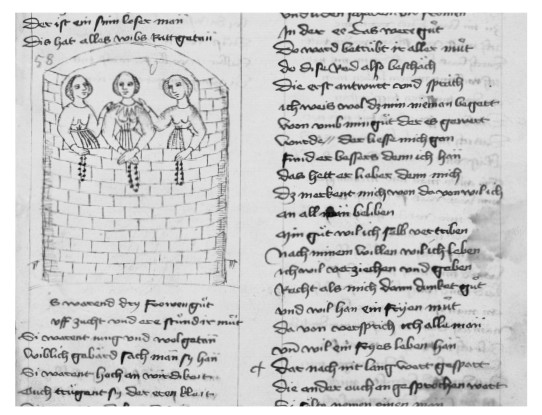 Der ist ein sinn loser man
Dis hat alles wibs Ratt getan
58
S warend dry frowen gůt
vff zucht vnd ere stůnd ir můt
Si warent iung vnd wolgetan
Willich gebärd sach man sy han
Si warent hoch an wirdikeit
Ouch trůgent sy der eren kleit
In der es das were gůt
Do ward betrübt ir aller můt
do dise red also beschach
Die erst antwurt vnd sprach
ich wais wol dz min nieman begert
Won vmb min gůt der es gewert
wurde der liesse mich gon
fund er bessers denn ich han
das hett er lieber denn mich
Dz merkent mich won do von wil ich
an all man beliben
min gůt wil ich selb vertriben
Nach minem willen wil ich leben
ich wil verziehen vnd geben
Recht als mich dann dunket gůt
vnd wil han ein fryen můt
Da von versprich ich alle man
vnd wil ein fryes leben han
Dar nach nit lang wart gespart
Die ander ouch angesprochen wart